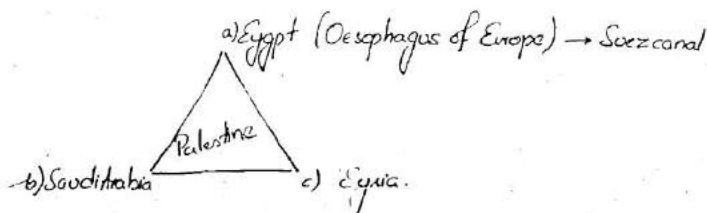 a) Eygpt (Oesophagus of Europe) → Suezcanal
Palestine
b) SaudiArabia
c) Syria.